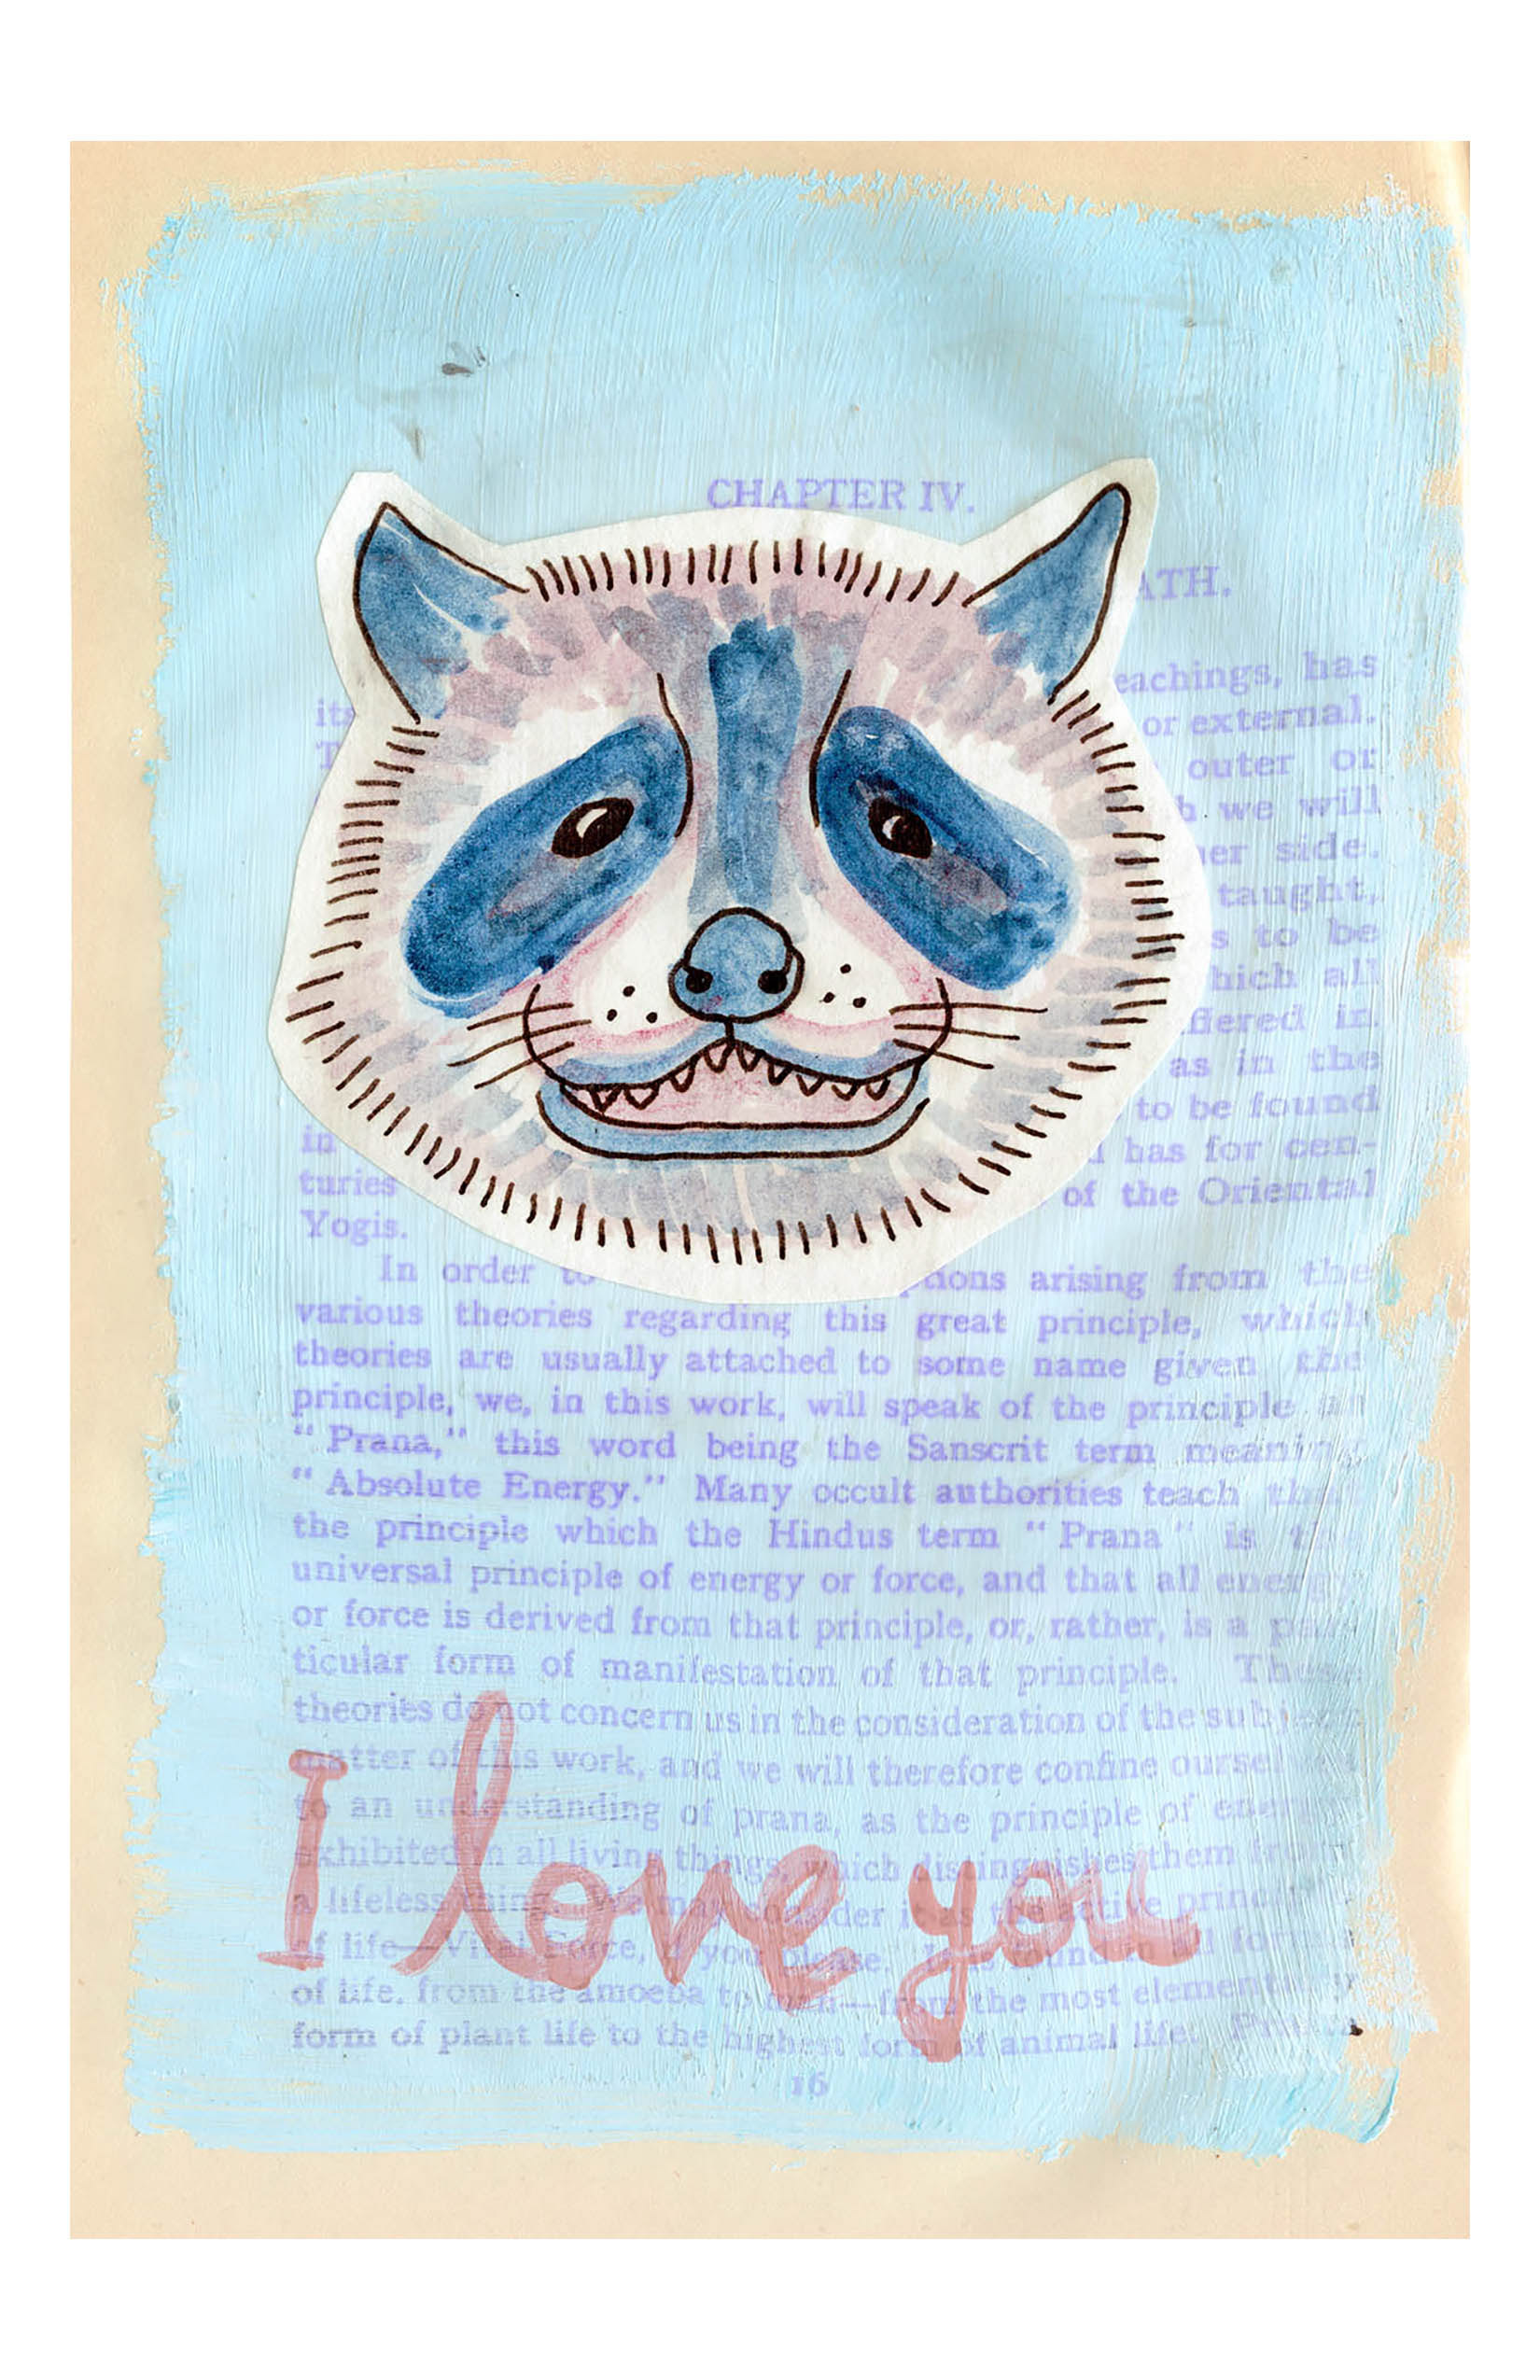 CHAPTER IV.
ATH.
eachings, has
its or external.
outer or
h we will
er side.
taught,
s to be
hich all
fered in
as in the
to be found
in has for cen-
turies of the Oriental
Yogis.
In order to tions arising from the
various theories regarding this great principle, which
theories are usually attached to some name given the
principle, we, in this work, will speak of the principle as
"Prana," this word being the Sanscrit term meaning
"Absolute Energy." Many occult authorities teach that
the principle which the Hindus term "Prana" is the
universal principle of energy or force, and that all energy
or force is derived from that principle, or, rather, is a par-
ticular form of manifestation of that principle. These
theories do not concern us in the consideration of the subject
matter of this work, and we will therefore confine
to an understanding of prana, as the principle of energy
exhibited in all living things, which distinguishes them from
a lifeless thing. We may consider it as the active principle
of life—Vital Force, if you please. It is found in all forms
of life, from the amoeba to man—from the most elementary
form of plant life to the highest form of animal life. Prana
16
I love you